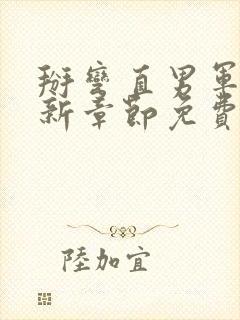 掰彎直男軍
新章節免費
陸加宜